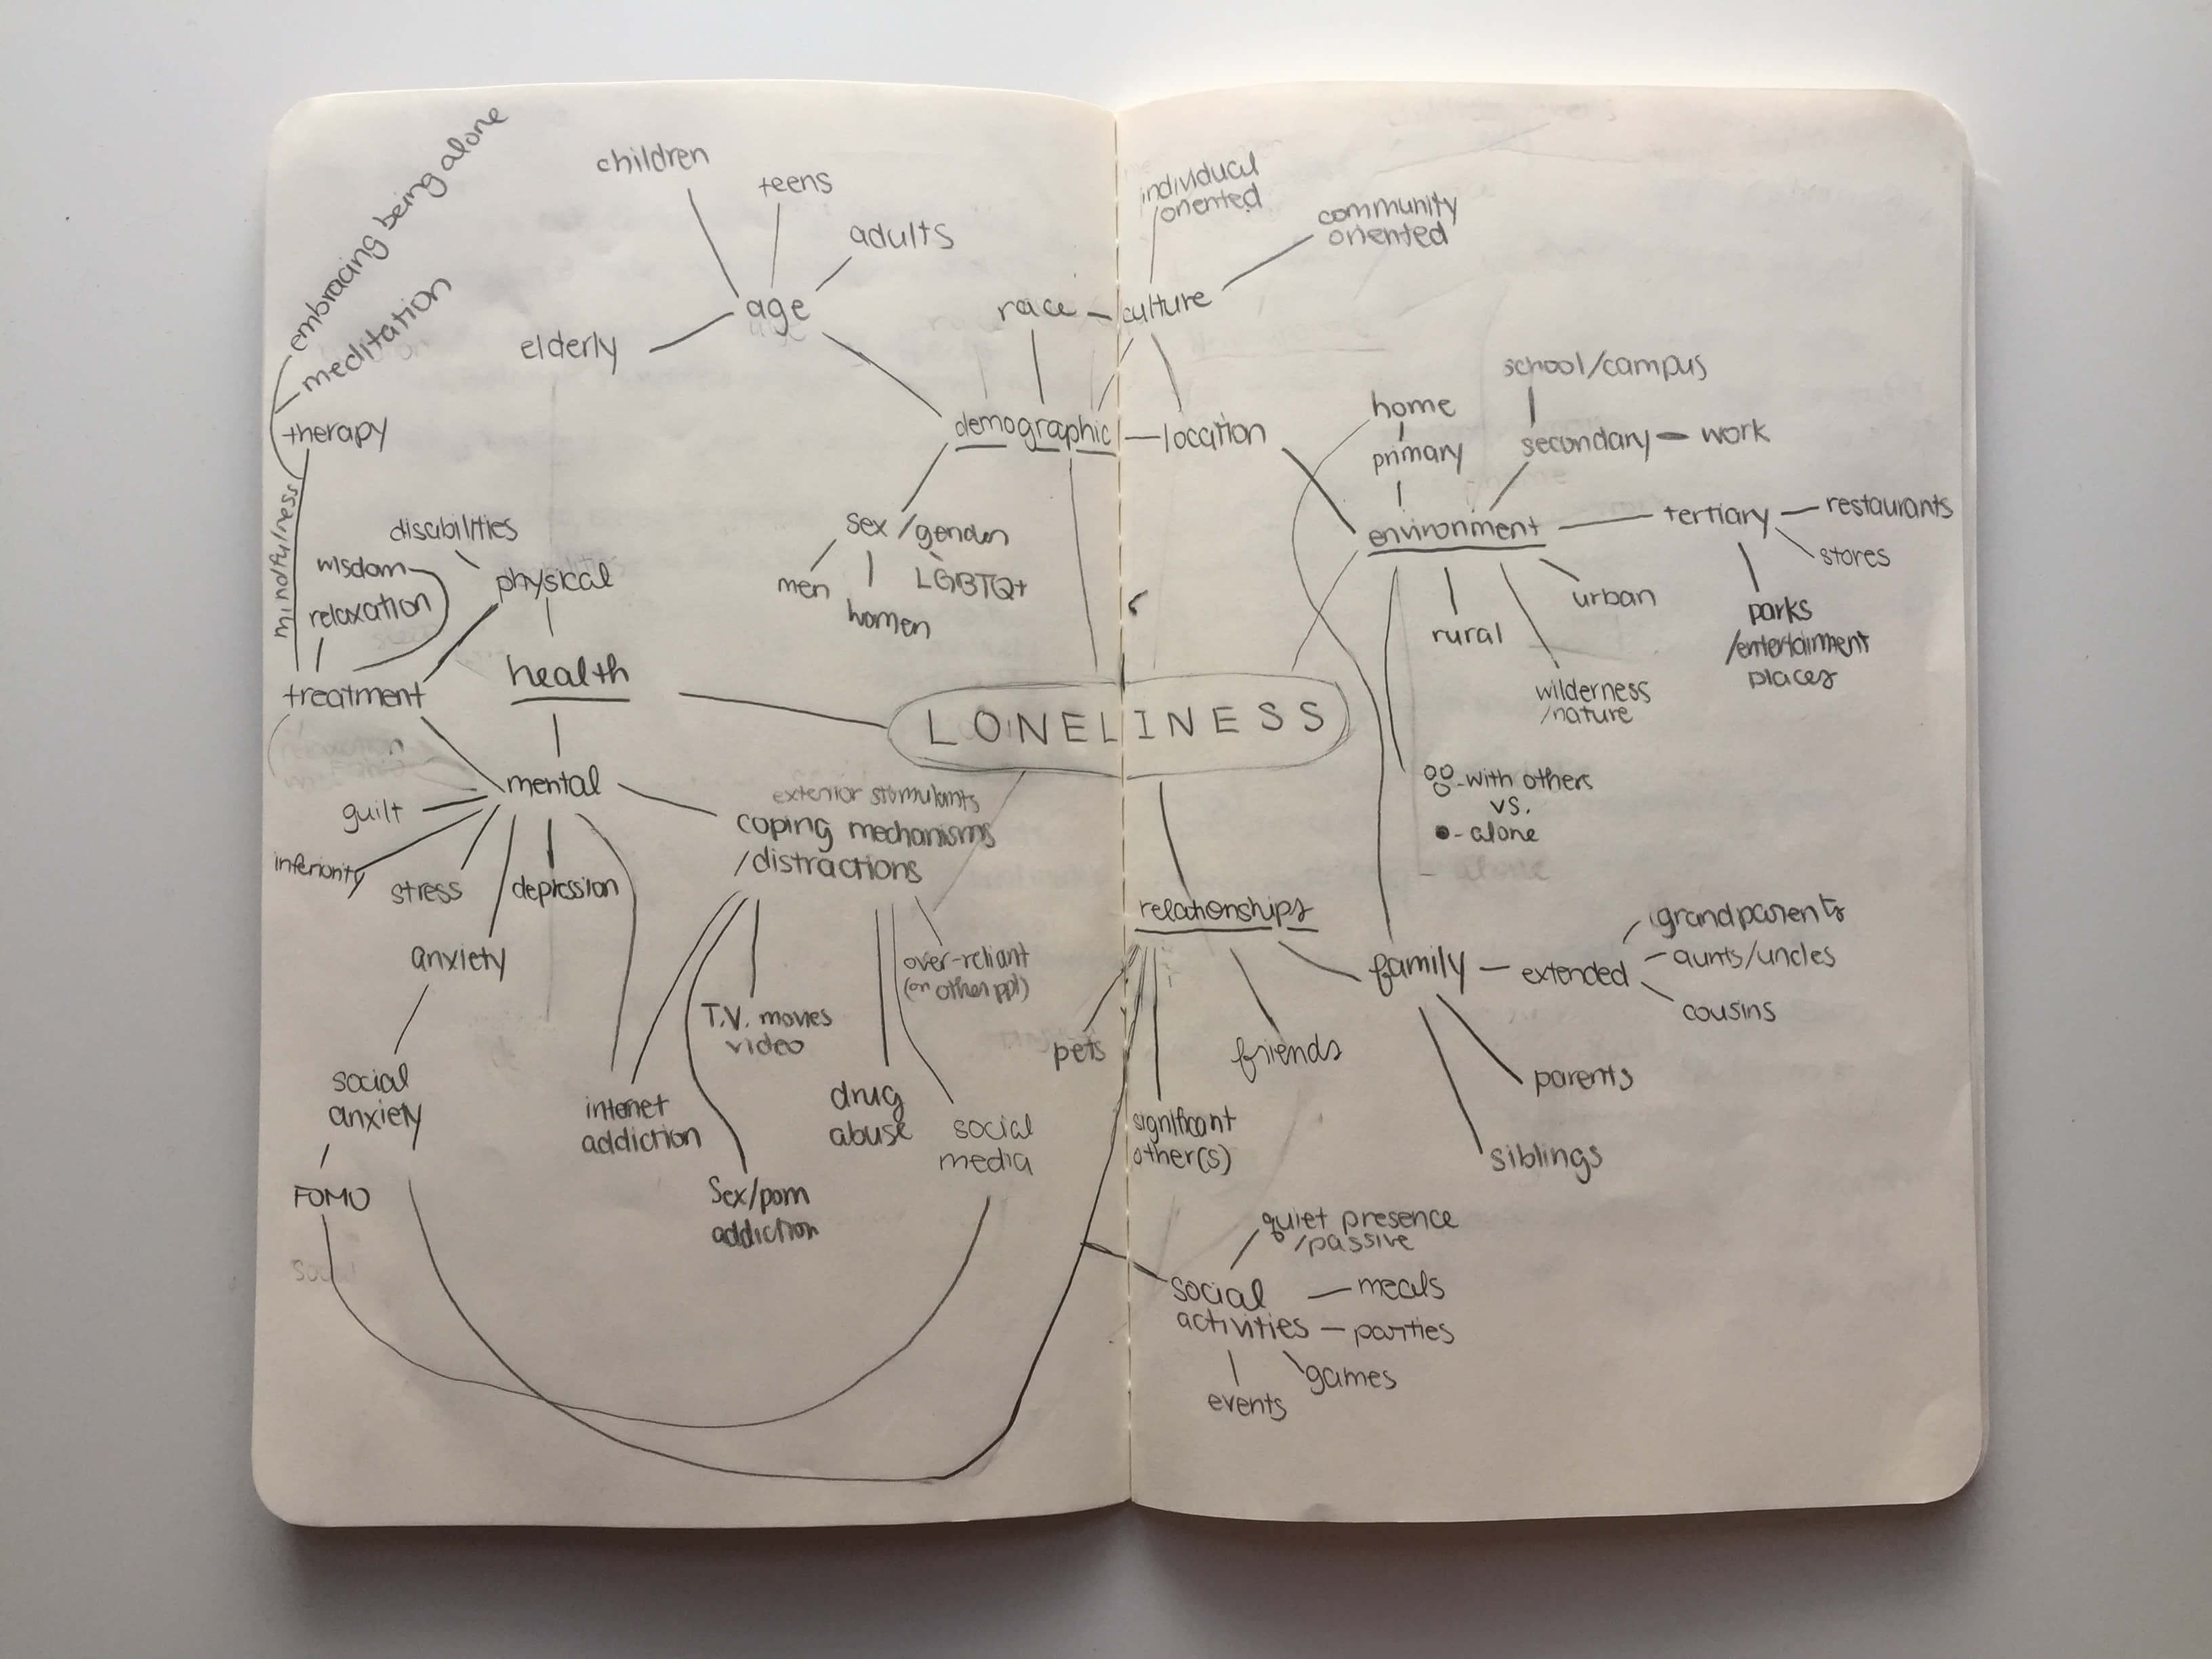 embracing being alone
meditation
therapy
mindfulness
children
teens
adults
age
elderly
race
culture
individual
/oriented
community
oriented
demographic
location
sex /gender
men
women
LGBTQ+
home
primary
school/campus
secondary
work
environment
tertiary
restaurants
stores
parks
/entertainment
places
urban
rural
wilderness
/nature
with others
vs.
- alone
disabilities
physical
wisdom
relaxation
treatment
health
LONELINESS
mental
guilt
inferiority
stress
depression
anxiety
social
anxiety
FOMO
exterior stimulants
coping mechanisms
/distractions
internet
addiction
T.V. movies
video
Sex/porn
addiction
drug
abuse
over-reliant
(on other ppl)
social
media
relationships
pets
significant
other(s)
friends
family
extended
grandparents
aunts/uncles
cousins
parents
siblings
social
activities
quiet presence
/passive
meals
parties
games
events